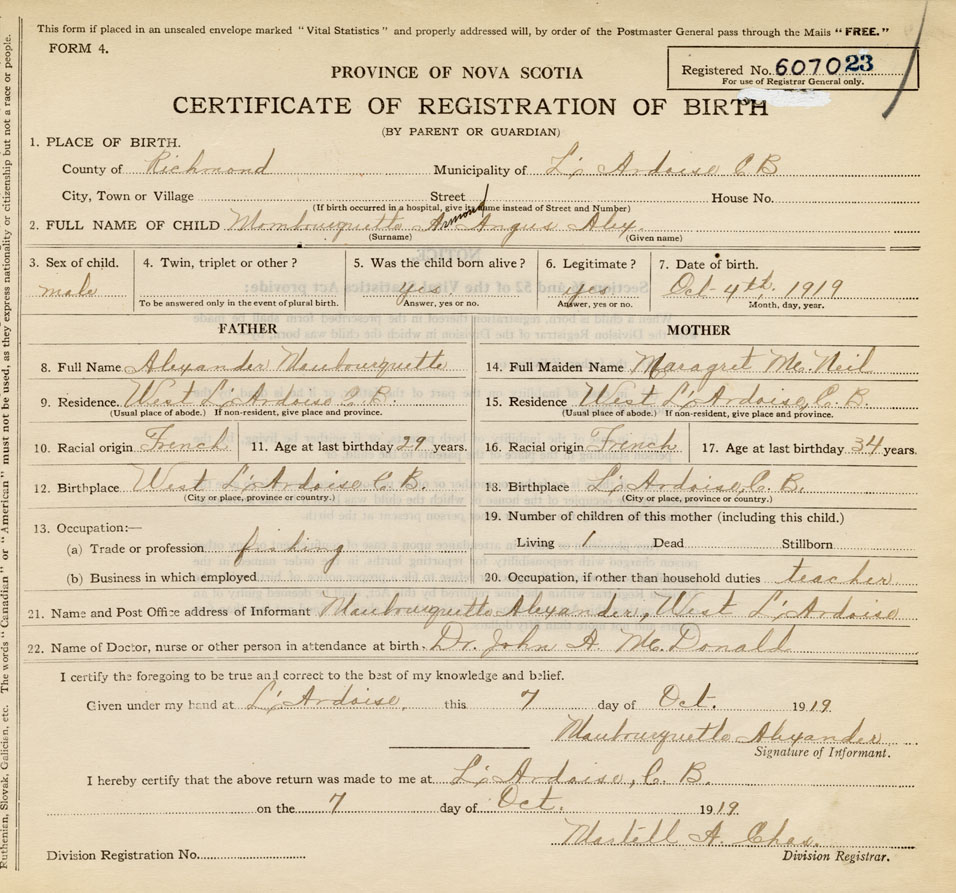 This form if placed in an unsealed envelope marked "Vital Statistics" and properly addressed will, by order of the Postmaster General pass through the Mails "FREE."
FORM 4.
Registered No. 607023
For use of Registrar General only.
PROVINCE OF NOVA SCOTIA
CERTIFICATE OF REGISTRATION OF BIRTH
(BY PARENT OR GUARDIAN)
1. PLACE OF BIRTH.
County of Richmond Municipality of L'Ardoise C B
City, Town or Village Street House No.
(If birth occurred in a hospital, give its name instead of Street and Number)
2. FULL NAME OF CHILD Mombourquette Armond Angus Alex.
(Surname) (Given name)
3. Sex of child. 4. Twin, triplet or other? 5. Was the child born alive? 6. Legitimate? 7. Date of birth.
male yes. yes Oct 4th. 1919
To be answered only in the event of plural birth. Answer, yes or no. Answer, yes or no. Month, day, year.
FATHER MOTHER
8. Full Name Alexander Maubourquette 14. Full Maiden Name Maragret Mc. Neil
9. Residence. West L'Ardoise C. B. 15. Residence West L'Ardoise, C. B
(Usual place of abode.) If non-resident, give place and province. (Usual place of abode.) If non-resident, give place and province.
10. Racial origin French 11. Age at last birthday 29 years. 16. Racial origin French 17. Age at last birthday 34 years.
12. Birthplace West L'Ardoise C. B. 18. Birthplace L'Ardoise, C. B.
(City or place, province or country.) (City or place, province or country.)
13. Occupation:— 19. Number of children of this mother (including this child.)
(a) Trade or profession fishing Living 1 Dead Stillborn
(b) Business in which employed 20. Occupation, if other than household duties teacher
21. Name and Post Office address of Informant Maubourquette Alexander, West L'Ardoise
22. Name of Doctor, nurse or other person in attendance at birth. Dr. John A. Mc. Donald
I certify the foregoing to be true and correct to the best of my knowledge and belief.
Given under my hand at L'Ardoise, this 7 day of Oct. 1919.
Maubourquette Alexander
Signature of Informant.
I hereby certify that the above return was made to me at L'Ardoise, C. B.
on the 7 day of Oct. 1919.
Martell A. Chas.
Division Registration No. Division Registrar.
Ruthenian, Slovak, Galician, etc. The words "Canadian" or "American" must not be used, as they express nationality or citizenship but not a race or people.